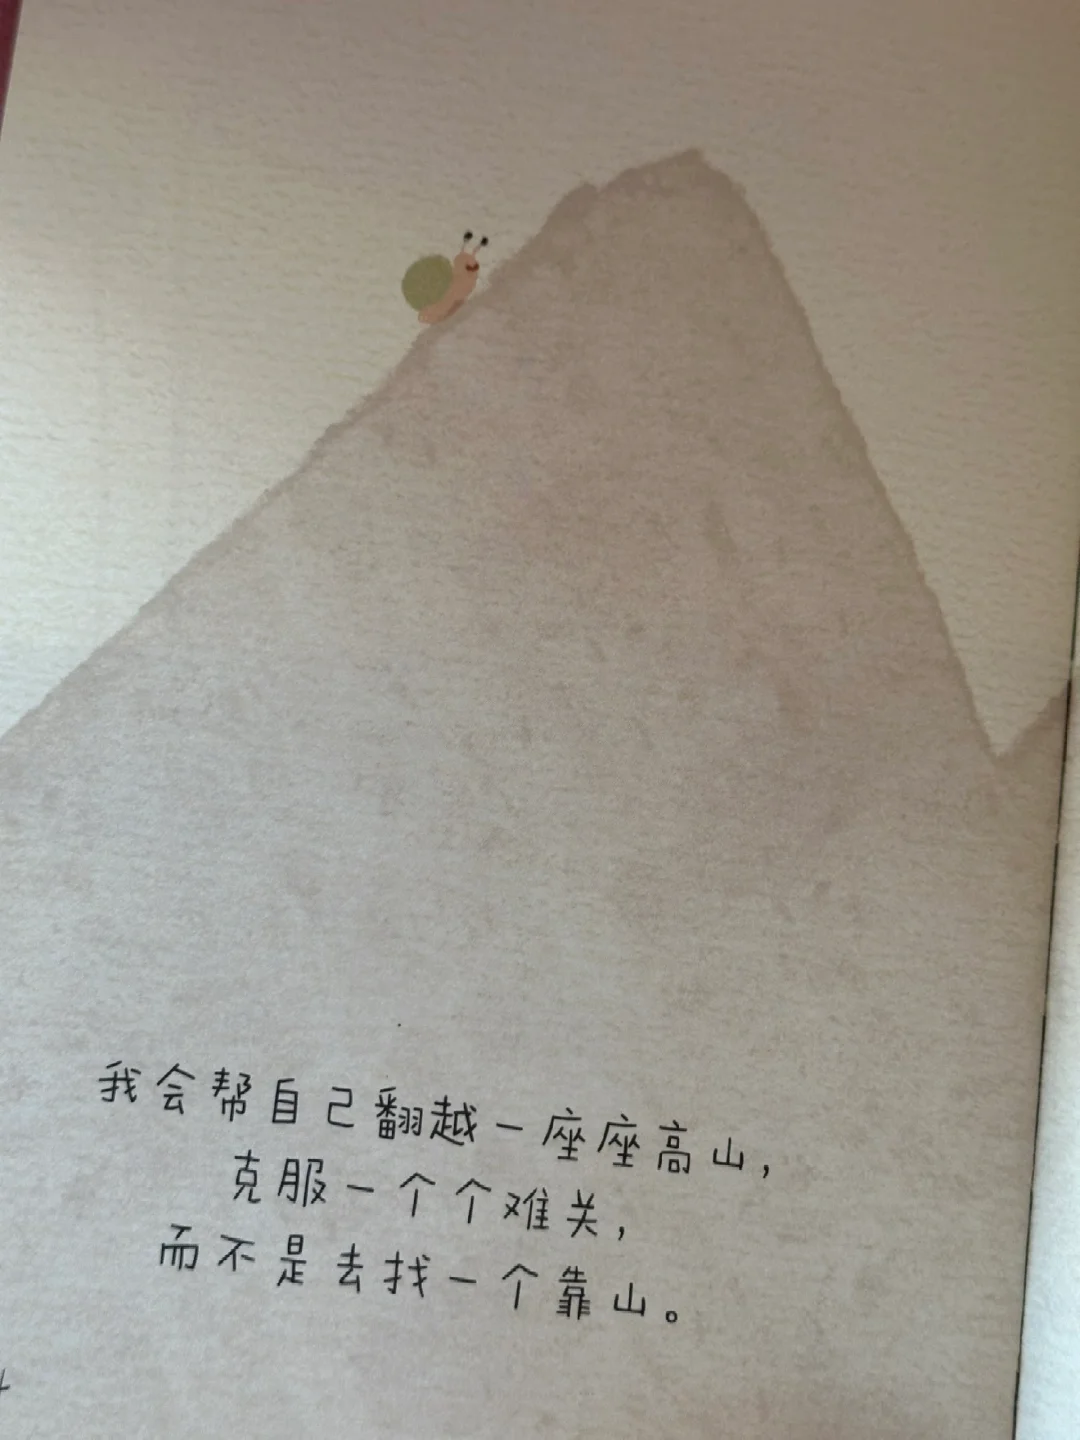 我会帮自己翻越一座座高山，
克服一个个难关，
而不是去找一个靠山。